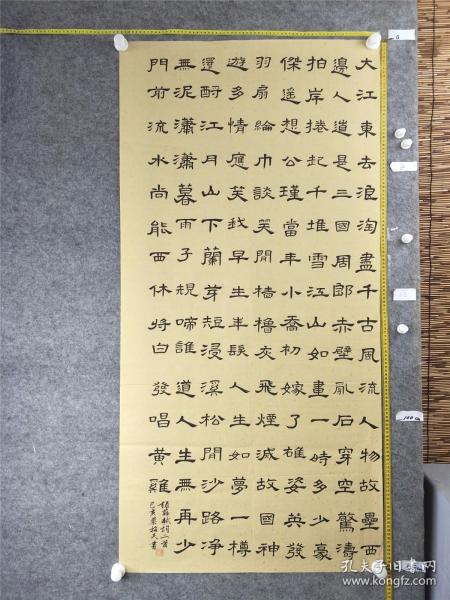 大江東去浪淘盡千古風流人物故壘西
邊人道是三國周郎赤壁亂石穿空驚濤
拍岸捲起千堆雪江山如畫一時多少豪
傑遙想公瑾當年小喬初嫁了雄姿英發
羽扇綸巾談笑間檣櫓灰飛煙滅故國神
遊多情應笑我早生華髮人生如夢一樽
還酹江月山下蘭芽短浸溪松間沙路淨
無泥瀟瀟暮雨子規啼誰道人生無再少
門前流水尚能西休將白發唱黃雞
錄蘇軾詞二首
己亥 天書
孔夫子旧书网